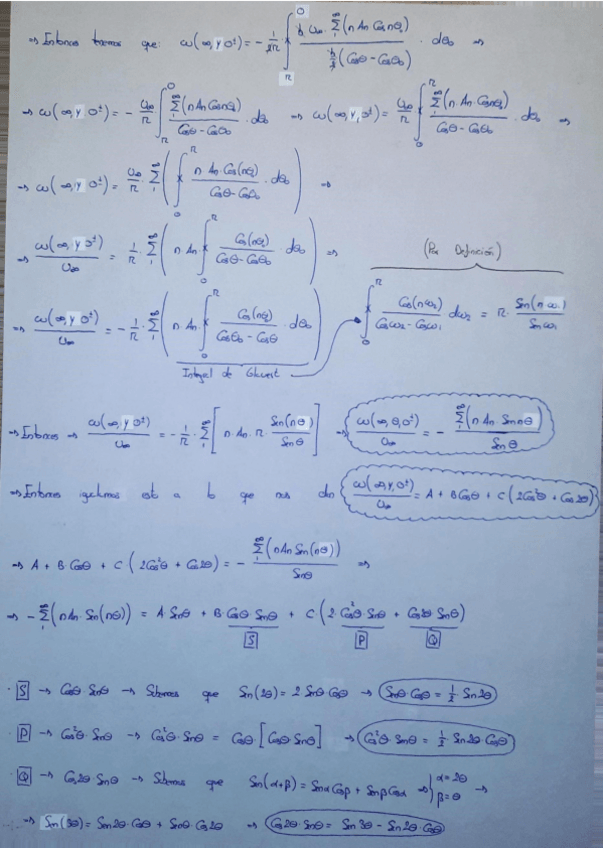 ⇒ Entonces tenemos que: ω(∞,y,0±) = -1/2π ∫_π^0 (b/2 U∞ Σ_1^∞ (n An Cos nθ₀)) / (b/2 (Cosθ - Cosθ₀)) · dθ₀ ⇒
⇒ ω(∞,y,0±) = - U∞/π ∫_π^0 Σ_1^∞ (n An Cos nθ₀) / (Cosθ - Cosθ₀) · dθ₀ ⇒ ω(∞,y,0±) = U∞/π ∫_0^π Σ_1^∞ (n·An·Cos nθ₀) / (Cosθ - Cosθ₀) · dθ₀ ⇒
⇒ ω(∞,y,0±) = U∞/π · Σ_1^∞ ( ∫_0^π n An·Cos(nθ₀) / (Cosθ - Cosθ₀) · dθ₀ ) ⇒
⇒ ω(∞,y,0±)/U∞ = 1/π · Σ_1^∞ ( n An · ∫_0^π Cos(nθ₀) / (Cosθ - Cosθ₀) dθ₀ ) ⇒
(Por Definición)
⇒ ω(∞,y,0±)/U∞ = - 1/π · Σ_1^∞ ( n An · ∫_0^π Cos(nθ₀) / (Cosθ₀ - Cosθ) · dθ₀ )
∫_0^π Cos(nω₂) / (Cosω₂ - Cosω₁) dω₂ = π · Sen(nω₁) / Senω₁
Integral de Glauert
⇒ Entonces → ω(∞,y,0±)/U∞ = - 1/π · Σ_1^∞ [ n An π Sen(nθ)/Senθ ] ⇒ ω(∞,θ,0±)/U∞ = - Σ_1^∞ (n An Sen nθ) / Senθ
⇒ Entonces igualamos esto a lo que nos dan ω(∞,y,0±)/U∞ = A + B Cosθ + C (2Cos²θ + Cos 2θ)
⇒ A + B Cosθ + C (2Cos²θ + Cos 2θ) = - Σ_1^∞ (n An Sen(nθ)) / Senθ ⇒
⇒ - Σ_1^∞ (n An · Sen(nθ)) = A Senθ + B Cosθ Senθ + C (2 Cos²θ Senθ + Cos 2θ Senθ)
S P Q
· S → Cosθ Senθ → Sabemos que Sen(2θ) = 2 Senθ Cosθ → Senθ Cosθ = 1/2 Sen 2θ
· P → Cos²θ·Senθ → Cos²θ·Senθ = Cosθ [Cosθ Senθ] → Cos²θ·Senθ = 1/2 Sen 2θ Cosθ
· Q → Cos 2θ Senθ → Sabemos que Sen(α+β) = Senα Cosβ + Senβ Cosα ⇒ } α = 2θ β = θ →
→ Sen(3θ) = Sen 2θ · Cosθ + Senθ · Cos 2θ → Cos 2θ · Senθ = Sen 3θ - Sen 2θ Cosθ